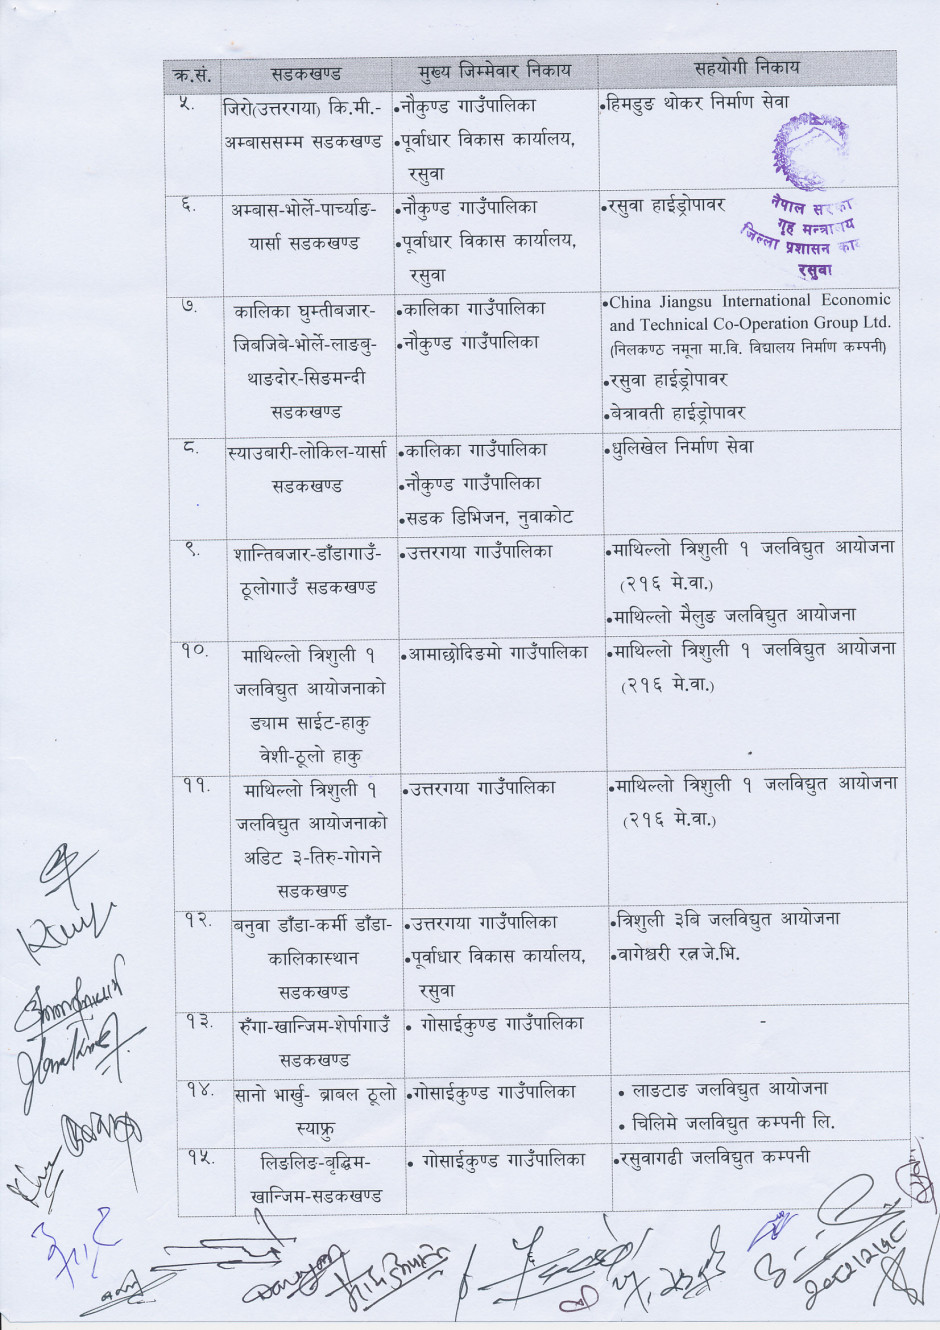 क्र.सं. सडकखण्ड मुख्य जिम्मेवार निकाय सहयोगी निकाय
५. जिरो(उत्तरगया) कि.मी.- •नौकुण्ड गाउँपालिका •हिमडुङ थोकर निर्माण सेवा
अम्बाससम्म सडकखण्ड •पूर्वाधार विकास कार्यालय,
रसुवा
नेपाल सरका
गृह मन्त्रालय
जिल्ला प्रशासन कार्य
रसुवा
६. अम्बास-भोर्ले-पार्च्याङ- •नौकुण्ड गाउँपालिका •रसुवा हाईड्रोपावर
यार्सा सडकखण्ड •पूर्वाधार विकास कार्यालय,
रसुवा
७. कालिका घुम्तीबजार- •कालिका गाउँपालिका •China Jiangsu International Economic
जिबजिबे-भोर्ले-लाङबु- •नौकुण्ड गाउँपालिका and Technical Co-Operation Group Ltd.
थाङदोर-सिङमन्दी (निलकण्ठ नमूना मा.वि. विद्यालय निर्माण कम्पनी)
सडकखण्ड •रसुवा हाईड्रोपावर
•बेत्रावती हाईड्रोपावर
८. स्याउबारी-लोकिल-यार्सा •कालिका गाउँपालिका •धुलिखेल निर्माण सेवा
सडकखण्ड •नौकुण्ड गाउँपालिका
•सडक डिभिजन, नुवाकोट
९. शान्तिबजार-डाँडागाउँ- •उत्तरगया गाउँपालिका •माथिल्लो त्रिशुली १ जलविद्युत आयोजना
ठूलोगाउँ सडकखण्ड (२१६ मे.वा.)
•माथिल्लो मैलुङ जलविद्युत आयोजना
१०. माथिल्लो त्रिशुली १ •आमाछोदिङमो गाउँपालिका •माथिल्लो त्रिशुली १ जलविद्युत आयोजना
जलविद्युत आयोजनाको (२१६ मे.वा.)
ड्याम साईट-हाकु
वेशी-ठूलो हाकु
११. माथिल्लो त्रिशुली १ •उत्तरगया गाउँपालिका •माथिल्लो त्रिशुली १ जलविद्युत आयोजना
जलविद्युत आयोजनाको (२१६ मे.वा.)
अडिट ३-तिरु-गोगने
सडकखण्ड
१२. बनुवा डाँडा-कर्मी डाँडा- •उत्तरगया गाउँपालिका •त्रिशुली ३बि जलविद्युत आयोजना
कालिकास्थान •पूर्वाधार विकास कार्यालय, •वागेश्वरी रत्न जे.भि.
सडकखण्ड रसुवा
१३. रुँगा-खान्जिम-शेर्पागाउँ • गोसाईकुण्ड गाउँपालिका -
सडकखण्ड
१४. सानो भार्खु- ब्राबल ठूलो •गोसाईकुण्ड गाउँपालिका • लाङटाङ जलविद्युत आयोजना
स्याफ्रु • चिलिमे जलविद्युत कम्पनी लि.
१५. लिङलिङ-वृद्धिम- • गोसाईकुण्ड गाउँपालिका •रसुवागढी जलविद्युत कम्पनी
खान्जिम-सडकखण्ड